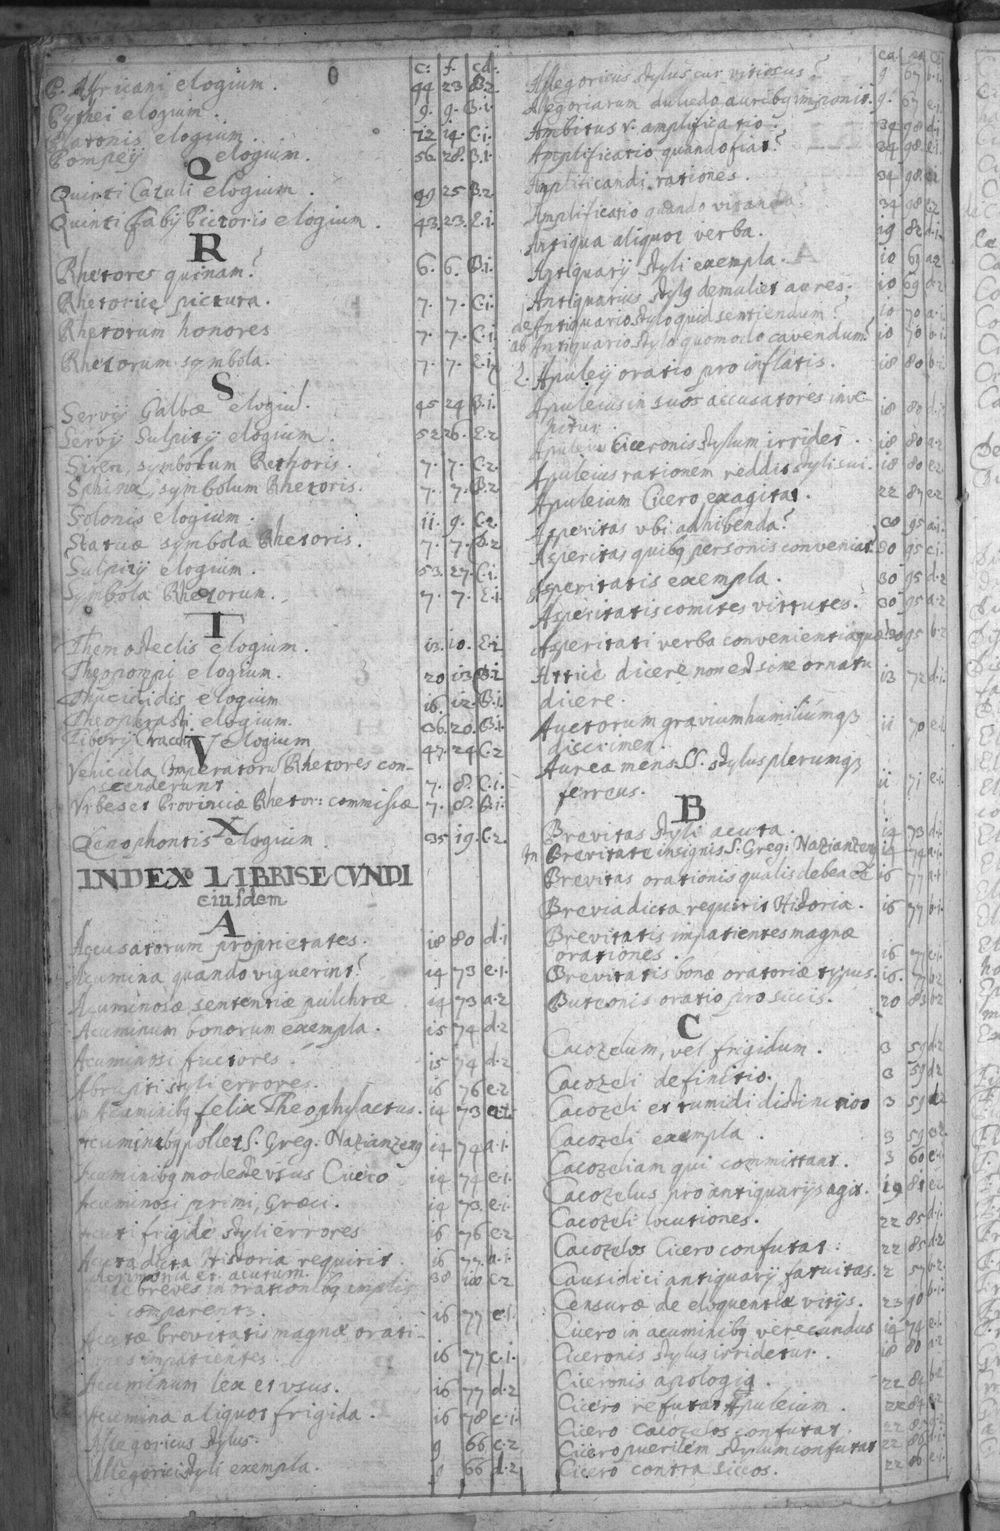 c: f. cd:
P. Africani elogium. 44 23 B.2
Pythei elogium. 9. 9. B.i.
Platonis elogium. 22 i4. C.i.
Pompeij elogium. 56. 28. B.i.
Q
Quinti Catuli elogium. 49 25 B.2
Quinti fabij Pictoris elogium. 43. 23. E.i.
R
Rhetores quinam? 6. 6. B.i.
Rhetoricę pictura. 7. 7. C.i.
Rhetorum honores 7. 7. C.i.
Rhetorum symbola. 7. 7. E.i
S
Servij Galbæ elogiũ. 45 24 B.i.
Servij Sulpitij elogium. 52 26. E.2
Siren, symbolum Rethoris. 7. 7. C.2
Sphinx, symbolum Rhetoris. 7. 7. B.2
Solonis elogium. ii. 9. C.2
Statuæ symbola Rhetoris. 7. 7. D.2
Sulpitij elogium. 53. 27. C.i.
Symbola Rhetorum. 7. 7. E.i
T
Themosteclis elogium. i3. i0. E.2
Theopompi elogium. 20 i3 B.i
Thucididis elogium i6. i2. B.i.
Theophrasti elogium. 36. 20. B.i.
Tiberij Gracchi elogium 47. 24 C.2
V
Vehicula Imperatorũ Rhetores con-
scenderunt 7. 8. C.i.
Vrbes et Provinciæ Rhetor: commissæ 7. 8. B.i.
X
Xenophontis elogium. 35 i9. C.2
INDEX LIBRI SECVNDI
eiusdem
A
Accusatorum proprietates. i8 80 d.i
Acumina quando viguerint? i4 73 e.i.
Acuminosæ sententiæ pulchræ i4 73 a.2
Acuminum bonorum exempla. i5 74 d.2
Acuminosi auctores. i5 74 d.2
Abrupti styli errores. i6 76 e.2
Acuminibq felix Theophylactus. i4 73 e.2
Acuminibq pollet S. Greg. Nazianzenq i4 74 a.i.
Acuminibq modeste vsus Cicero i4 74 e.i.
Acuminosi primi, Græci. i4 73. e.i.
Acuti frigide styli errores i6 76 e.2
Acuta dicta Historia requirit i6 77. a.i.
acrimonia et acutum. 38 i00 c.2
breves in orationibq amplis
comparentz. i6 77 e.i.
Acutæ brevitatis magnæ orati-
ones impatientes. i6 77 c.i.
Acuminum lex et vsus. i6 77 d.2
Acumina aliquot frigida. i6 78 c.i.
Allegoricus stylus. 9 66 c.2
Allegorici styli exempla. 9 66 d.2
ca.
Allegoricus stylus cur vitiosus? 9 67 b.i.
Allegoriarum dulcedo auribq imponit. 9. 67 e.i.
Ambitus v. amplificatio. 34 98 d.i
Amplificatio quando fiat? 34 98. e.i.
Amplificandi rationes. 34 98. e2
Amplificatio quando vitanda? 34 98 e2
Antiqua aliquot verba. i9 82 d.i.
Antiquarij styli exempla. i0 69 a2
Antiquarius stylq demulcet aures. i0 69 d2
de Antiquario stylo quid sentiendum? i0 70 a.i.
ab Antiquario stylo quomodo cavendum? i0 70 b.i.
Apuleij oratio pro inflatis. i8 80 b.i.
Apuleius in suos accusatores inve-
hitur. i8 80 d.i.
Apuleius Ciceronis stylum irridet. i8 80 a.2
Apuleius rationem reddit styli sui. i8 80 e2.
Apuleium Cicero exagitat. 22 87 e2
Asperitas vbi adhibenda? 30 95 a.i.
Asperitas quibq personis conveniat. 30 95 c.i.
Asperitatis exempla. 30 95 d.2
Asperitatis comites virtutes. 30 95 a.2
Asperitati verba convenientia quę? 30 95 b.2
Attice dicere non est sine ornatu
dicere. i3 72 d.i.
Auctorum gravium humiliumqz
discrimen. ii 70 e.i.
Aurea mens SS. stylus plerumqz
ferreus. ii 71 e.i.
B
Brevitas styli acuta. i4 73 d.i.
In Brevitate insignis S. Greg: Nazianzenq i4 74 a.i.
Brevitas orationis qualis debeat eẽ i6 77 a.i
Brevia dicta requirit Historia. i6 77 b.i.
Brevitatis impatientes magnæ
orationes. i6 77 e.i.
Brevitatis bonæ oratoriæ typus. i6. 77 b.2
Buteonis oratio pro siccis. 20 83 b2
C
Cacozelum, vel frigidum. 3 59 d2
Cacozeli definitio. 3 59 d2
Cacozeli et tumidi distinctio 3 59 d2
Cacozeli exempla. 3 59 e2
Cacozeliam qui committant. 3 60 e.i
Cacozelus pro antiquarijs agit. i9 81 e.i
Cacozeli locutiones. 22 85 d.i.
Cacozelos Cicero confutat: 22 85 d.2
Causidici antiquarij fatuitas. 2 57 b.2
Censuræ de eloquentiæ vitijs. 23 90 b.i.
Cicero in acuminibq verecundus i4 74 e.i.
Ciceronis stylus irridetur. i8 80 a.2
Ciceronis apologia. 22 84 b2
Cicero refutat Apuleium. 22 84 e2
Cicero cacozelos confutat. 22 85 d.i.
Cicero puerilem stylum confutat 22 86
Cicero contra siccos. 22 86 e.i.